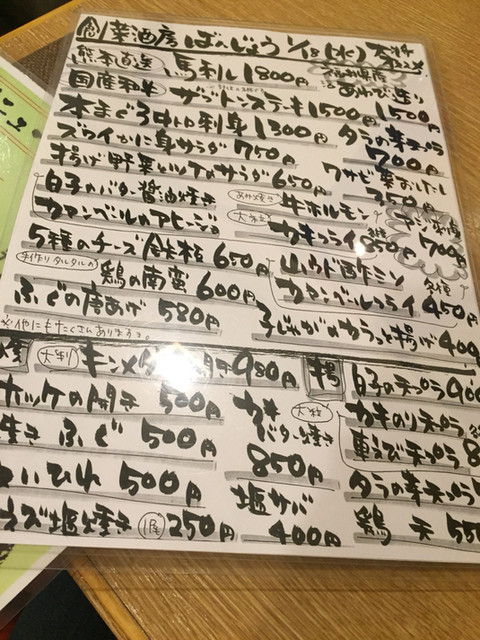 創 菜酒房 ばんじょう 1/18 (水) 本日の
熊本直送 馬刺し 1800円
国産和牛 ザブトンステーキ 1500円
あわび造り 1500円
本まぐろ中トロ刺身 1300円
タラの芽天ぷら 700円
ズワイかに身サラダ 750円
揚げ野菜とツナのサラダ 650円
ワサビ菜おひたし 350円
白子のバター醤油焼き
カマンベールのアヒージョ
みそ焼き 牛ホルモン
大粒 カキフライ 850円
700円
5種のチーズ 鉄板 650円
手作りタルタルの 鶏の南蛮 600円
ふぐの唐あげ 580円
山ウド酢みそ
カマンベールフライ 各種 450円
子じゃがのカラッと揚げ 400
※他にもたくさんあります。
大判 キンメダイ開き 980円
ホッケの開き 500円
ふぐ 500円
えいひれ 500円
塩焼き 1尾 250円
大粒 カキバター焼き 850円
塩サバ 400円
揚 白子の天ぷら 900
カキのり天ぷら
車えび天ぷら 8
タラの芽天ぷら
鶏天 550